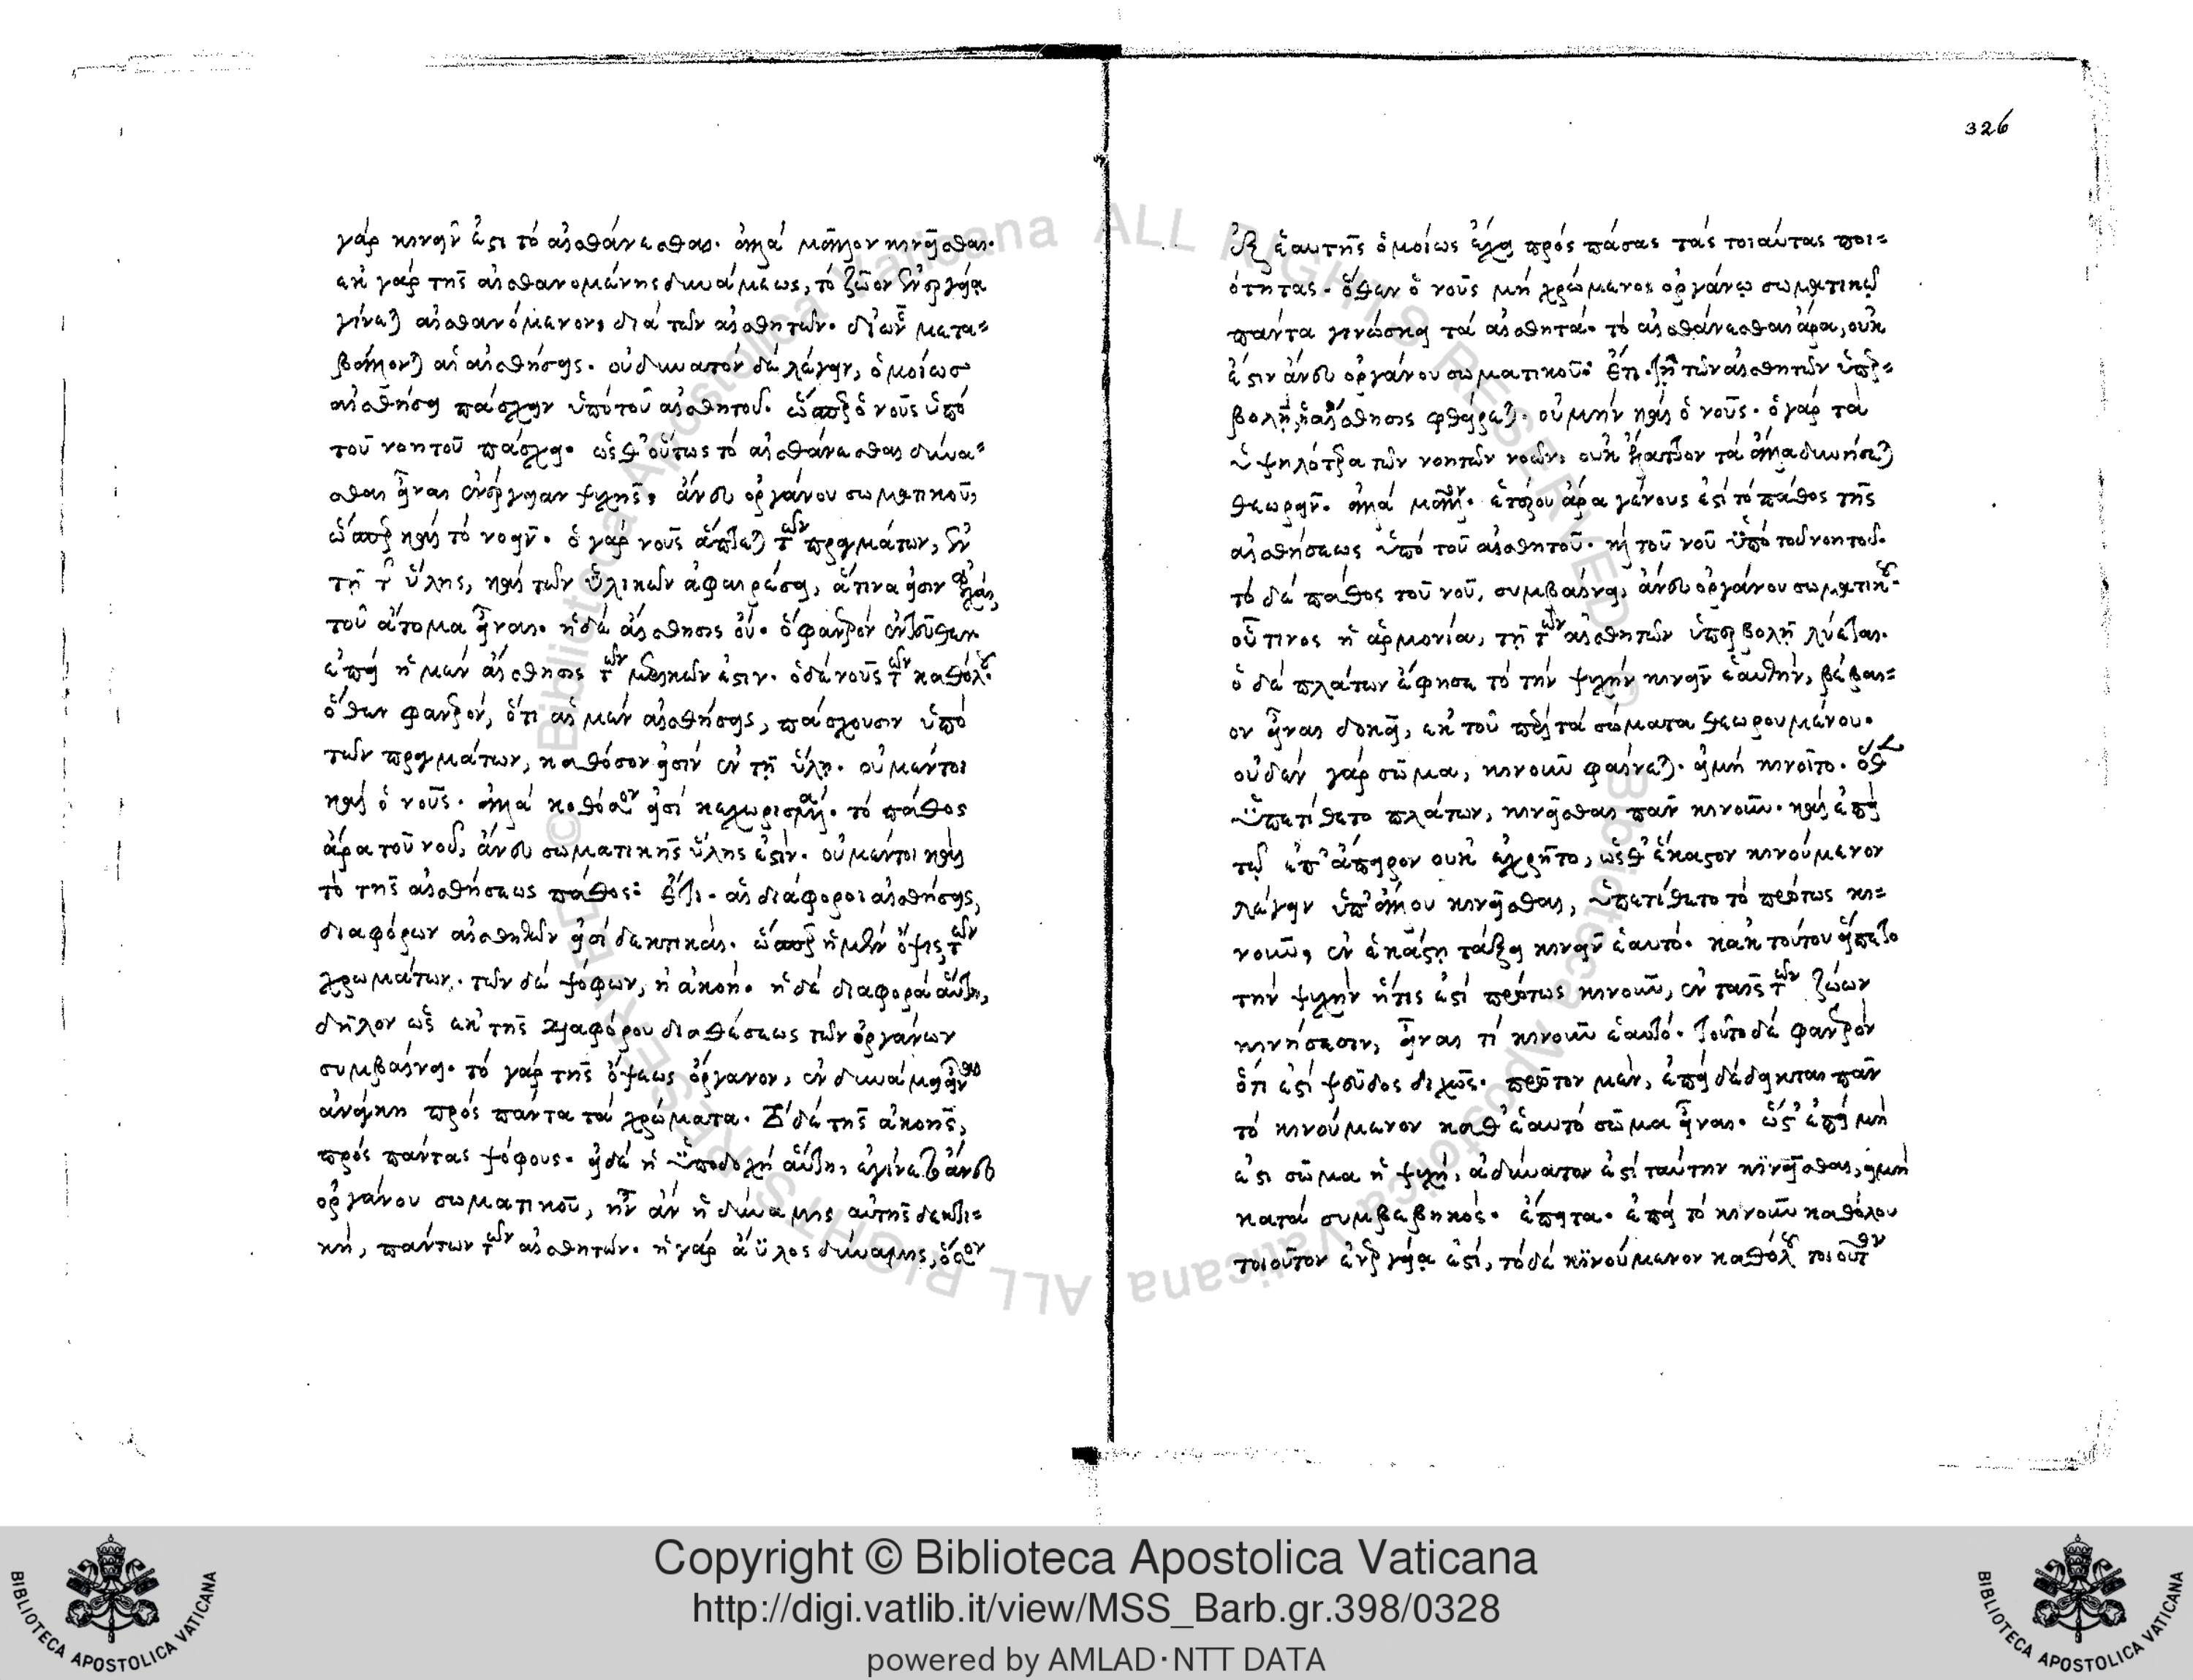 γάρ κινεῖν ἐστι τό αἰσθάνεσθαι. ἀλλά μᾶλλον κινεῖσθαι.
ἐκ γάρ τῆς αἰσθανομένης δυνάμεως, τό ζῶον ἐνεργείᾳ
γίνεται αἰσθανόμενον, διά τῶν αἰσθητῶν. δι' ὧν μετα=
βάλλονται αἱ αἰσθήσεις. οὐ δυνατόν δέ λέγειν, ὁμοίως
αἰσθήσει πάσχειν ὑπό τοῦ αἰσθητοῦ. ὥσπερ ὁ νοῦς ὑπό
τοῦ νοητοῦ πάσχει. ὥσθ' οὕτως τό αἰσθάνεσθαι δύνα=
σθαι εἶναι ἐνέργειαν ψυχῆς, ἄνευ ὀργάνου σωματικοῦ,
ὥσπερ καί τό νοεῖν. ὁ γάρ νοῦς ἅπτεται τῶν πραγμάτων, ἐν
τῇ τῆς ὕλης, καί τῶν ὑλικῶν ἀφαιρέσει, ἅτινά εἰσιν ἀρχαί
τοῦ ἄτομα εἶναι. ἡ δέ αἴσθησις οὔ. ὅ φανερόν ἐντεῦθεν.
ἐπεί ἡ μέν αἴσθησις τῶν μερικῶν ἐστιν. ὁ δέ νοῦς τῶν καθόλου.
ὅθεν φανερόν, ὅτι αἱ μέν αἰσθήσεις, πάσχουσιν ὑπό
τῶν πραγμάτων, καθόσον εἰσίν ἐν τῇ ὕλῃ. οὐ μέντοι
καί ὁ νοῦς. ἀλλά καθόσον εἰσί κεχωρισμένα. τό πάθος
ἄρα τοῦ νοῦ, ἄνευ σωματικῆς ὕλης ἐστίν. οὐ μέντοι καί
τό τῆς αἰσθήσεως πάθος: ἔτι. αἱ διάφοροι αἰσθήσεις,
διαφόρων αἰσθητῶν εἰσί δεκτικαί. ὥσπερ ἡ μέν ὄψις, τῶν
χρωμάτων. τῶν δέ ψόφων, ἡ ἀκοή. ἡ δέ διαφορά αὕτη,
δῆλον ὡς ἐκ τῆς διαφόρου διαθέσεως τῶν ὀργάνων
συμβαίνει. τό γάρ τῆς ὄψεως ὄργανον, ἐν δυνάμει εἶναι
ἀνάγκη πρός πάντα τά χρώματα. τό δέ τῆς ἀκοῆς,
πρός πάντας ψόφους. εἰ δέ ἡ ὑποδοχή αὕτη, ἐγίνετο ἄνευ
ὀργάνου σωματικοῦ, ἦν ἄν ἡ δύναμις αὐτῆς δεκτι=
κή, πάντων τῶν αἰσθητῶν. ἡ γάρ ἄϋλος δύναμις, ὅσον
326
ἐξ ἑαυτῆς ὁμοίως ἔχει πρός πάσας τάς τοιαύτας ποι=
ότητας. ὅθεν ὁ νοῦς μή χρώμενος ὀργάνῳ σωματικῷ
πάντα γινώσκει τά αἰσθητά. τό αἰσθάνεσθαι ἄρα, οὐκ
ἔστιν ἄνευ ὀργάνου σωματικοῦ: ἔτι. τῇ τῶν αἰσθητῶν ὑπερ=
βολῇ, ἡ αἴσθησις φθείρεται. οὐ μήν καί ὁ νοῦς. ὁ γάρ τά
ὑψηλότερα τῶν νοητῶν νοῶν, οὐκ ἔλαττον τά ἄλλα δυνήσεται
θεωρεῖν. ἀλλά μᾶλλον. ἑτέρου ἄρα γένους ἐστί τό πάθος τῆς
αἰσθήσεως ὑπό τοῦ αἰσθητοῦ. καί τοῦ νοῦ ὑπό τοῦ νοητοῦ.
τό δέ πάθος τοῦ νοῦ, συμβαίνει, ἄνευ ὀργάνου σωματικοῦ.
οὗτινος ἡ ἁρμονία, τῇ τῶν αἰσθητῶν ὑπερβολῇ λύεται.
ὁ δέ πλάτων ἔφησε τό τήν ψυχήν κινεῖν ἑαυτήν, βέβαι=
ον εἶναι δοκεῖ, ἐκ τοῦ περί τά σώματα θεωρουμένου.
οὐδέν γάρ σῶμα, κινοῦν φαίνεται. εἰ μή κινοῖτο. ὅθεν
ὑπετίθετο πλάτων, κινεῖσθαι πᾶν κινοῦν. καί ἐπεί
τῷ ἐπ' ἄπειρον οὐκ ἐχρῆτο, ὥσθ' ἕκαστον κινούμενον
λέγειν ὑπ' ἄλλου κινεῖσθαι, ὑπετίθετο τό πρώτως κι=
νοῦν, ἐν ἑκάστῃ τάξει κινεῖν ἑαυτό. κἀκ τούτου εἵπετο
τήν ψυχήν ἥτις ἐστί πρώτως κινοῦν, ἐν ταῖς τῶν ζώων
κινήσεσιν, εἶναι τί κινοῦν ἑαυτό. τοῦτο δέ φανερόν
ὅτι ἐστί ψεῦδος διχῶς. πρῶτον μέν, ἐπεί δέδεικται πᾶν
τό κινούμενον καθ' ἑαυτό σῶμα εἶναι. ὥστ' ἐπεί μή
ἐστι σῶμα ἡ ψυχή, ἀδύνατον ἐστί ταύτην κινεῖσθαι, εἰ μή
κατά συμβεβηκός. ἔπειτα. ἐπεί τό κινοῦν καθόλου
τοιοῦτον ἐνεργείᾳ ἐστί, τό δέ κινούμενον καθόλου τοιοῦτον
Copyright © Biblioteca Apostolica Vaticana
http://digi.vatlib.it/view/MSS_Barb.gr.398/0328
powered by AMLAD·NTT DATA
BIBLIOTECA APOSTOLICA VATICANA
BIBLIOTECA APOSTOLICA VATICANA